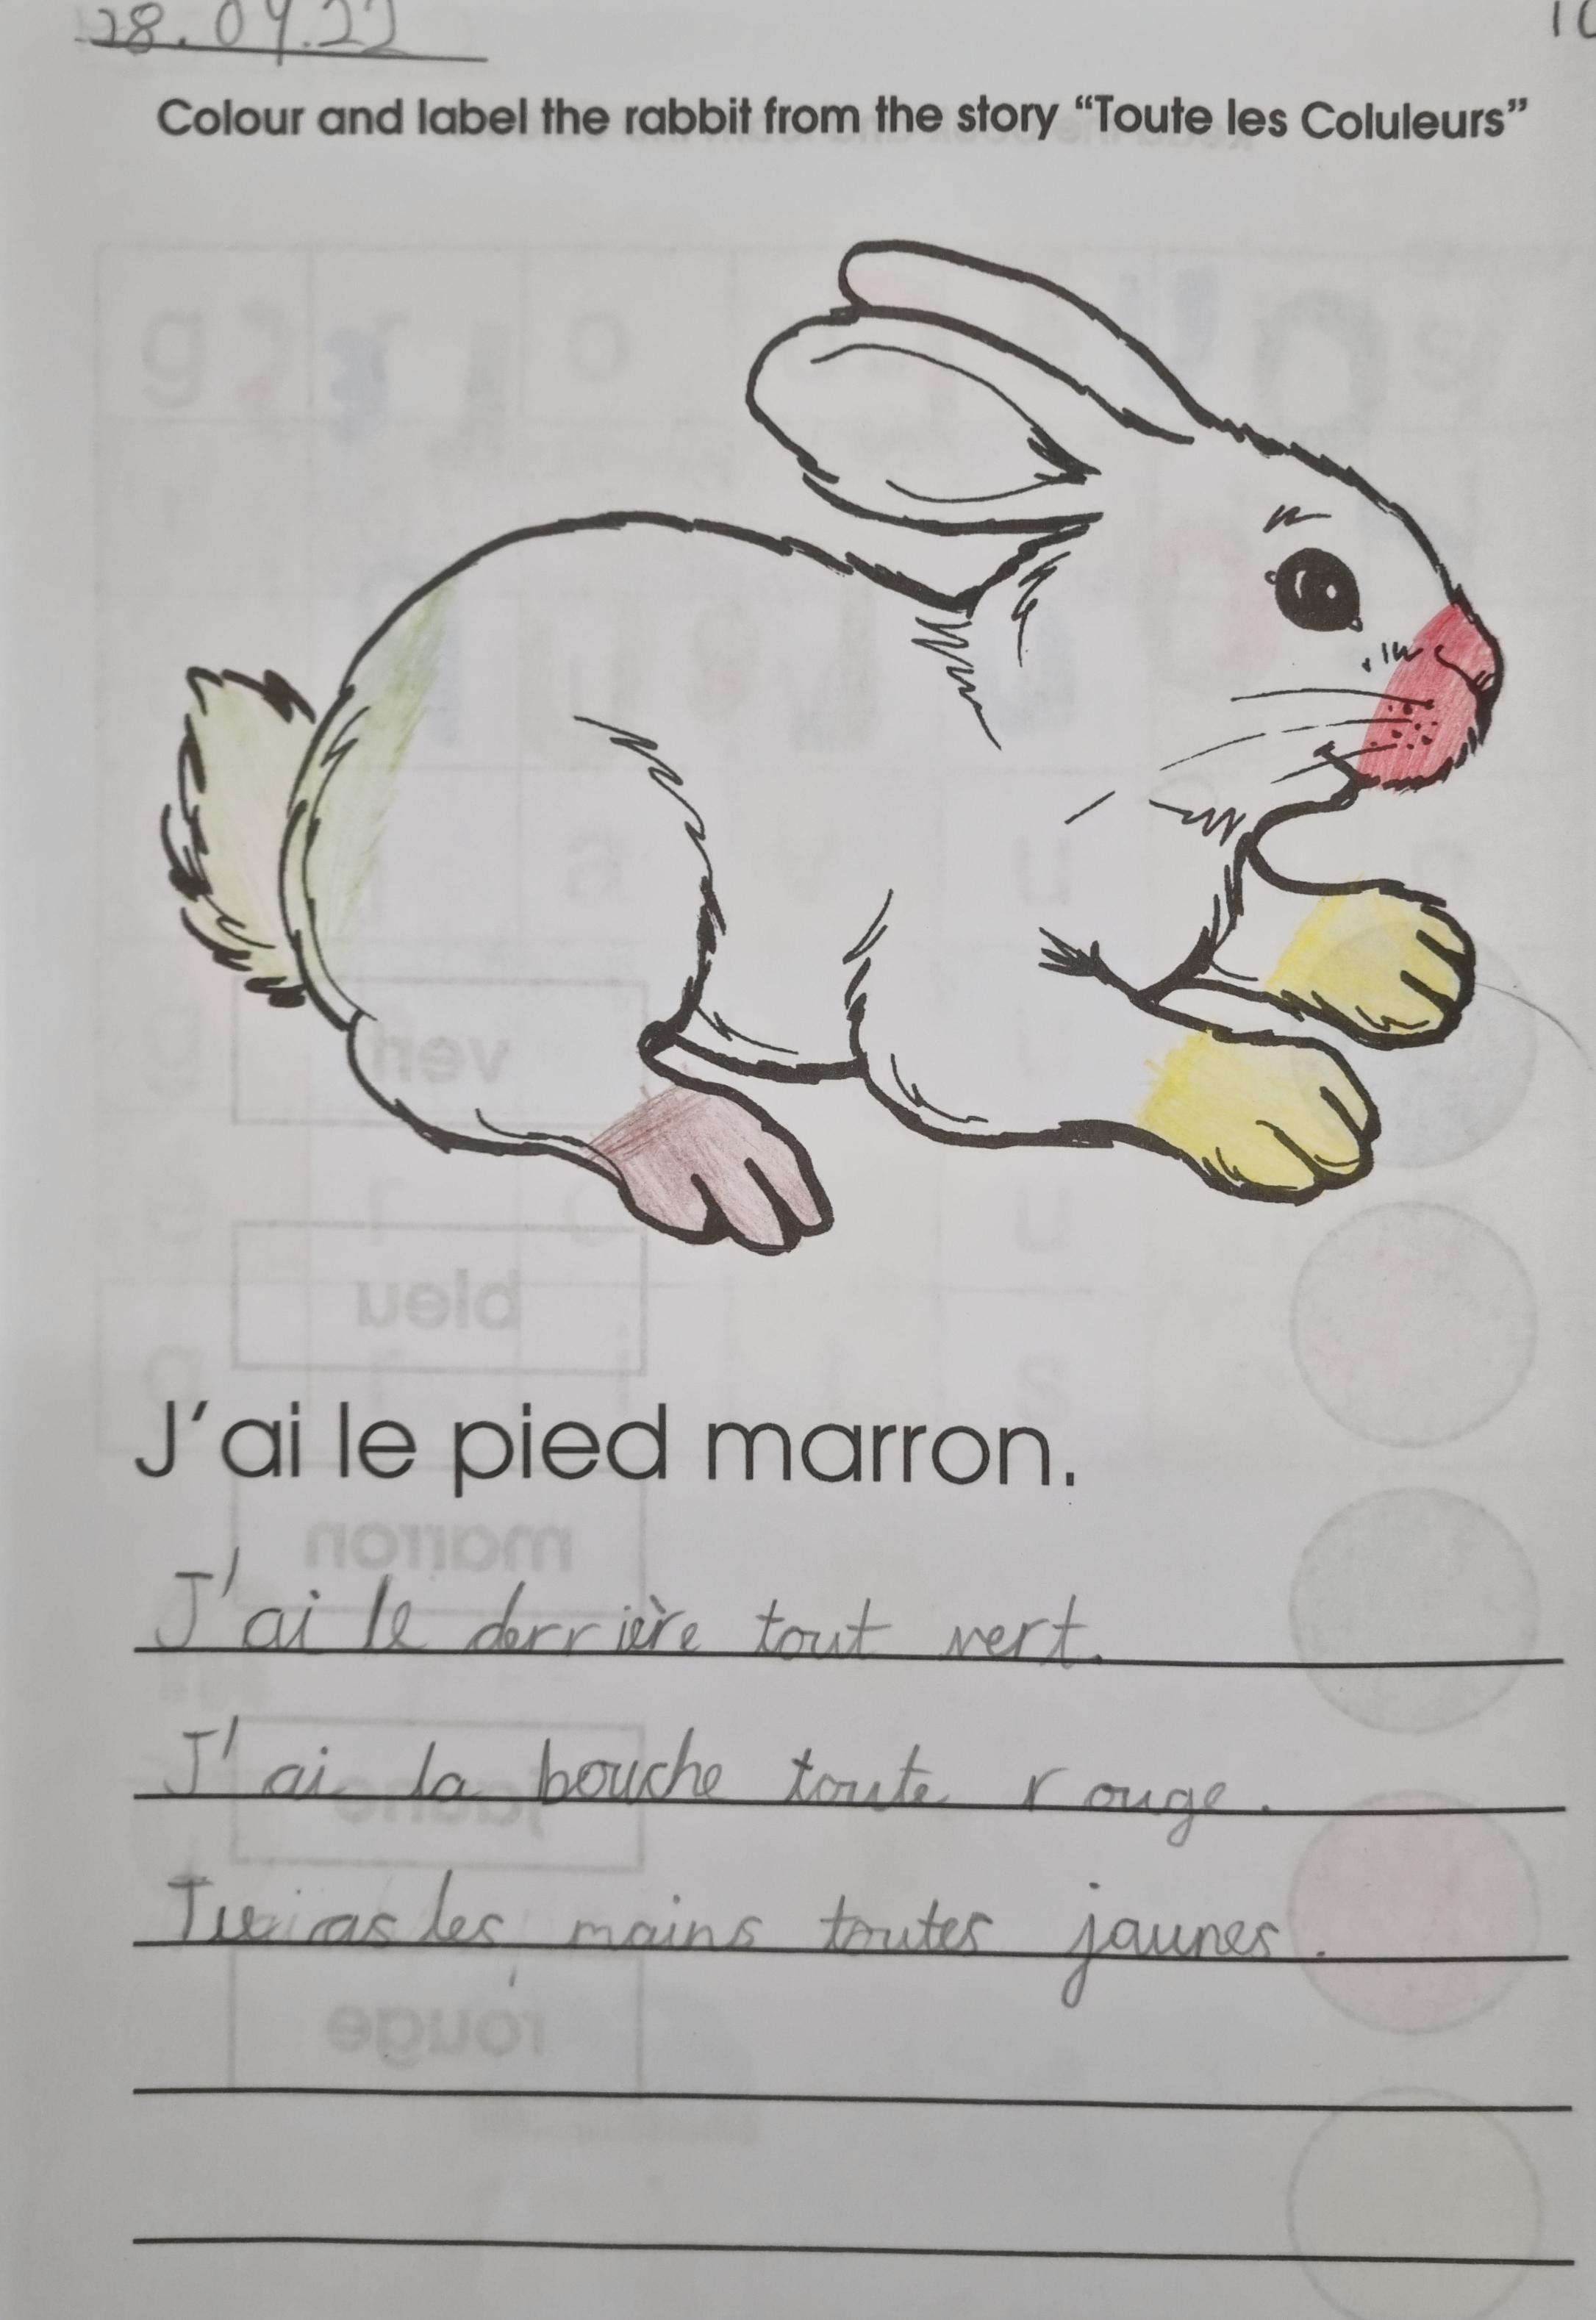 28.09.22
Colour and label the rabbit from the story “Toute les Coluleurs”
J'ai le pied marron.
J'ai le derrière tout vert.
J'ai la bouche toute rouge.
Tu as les mains toutes jaunes.